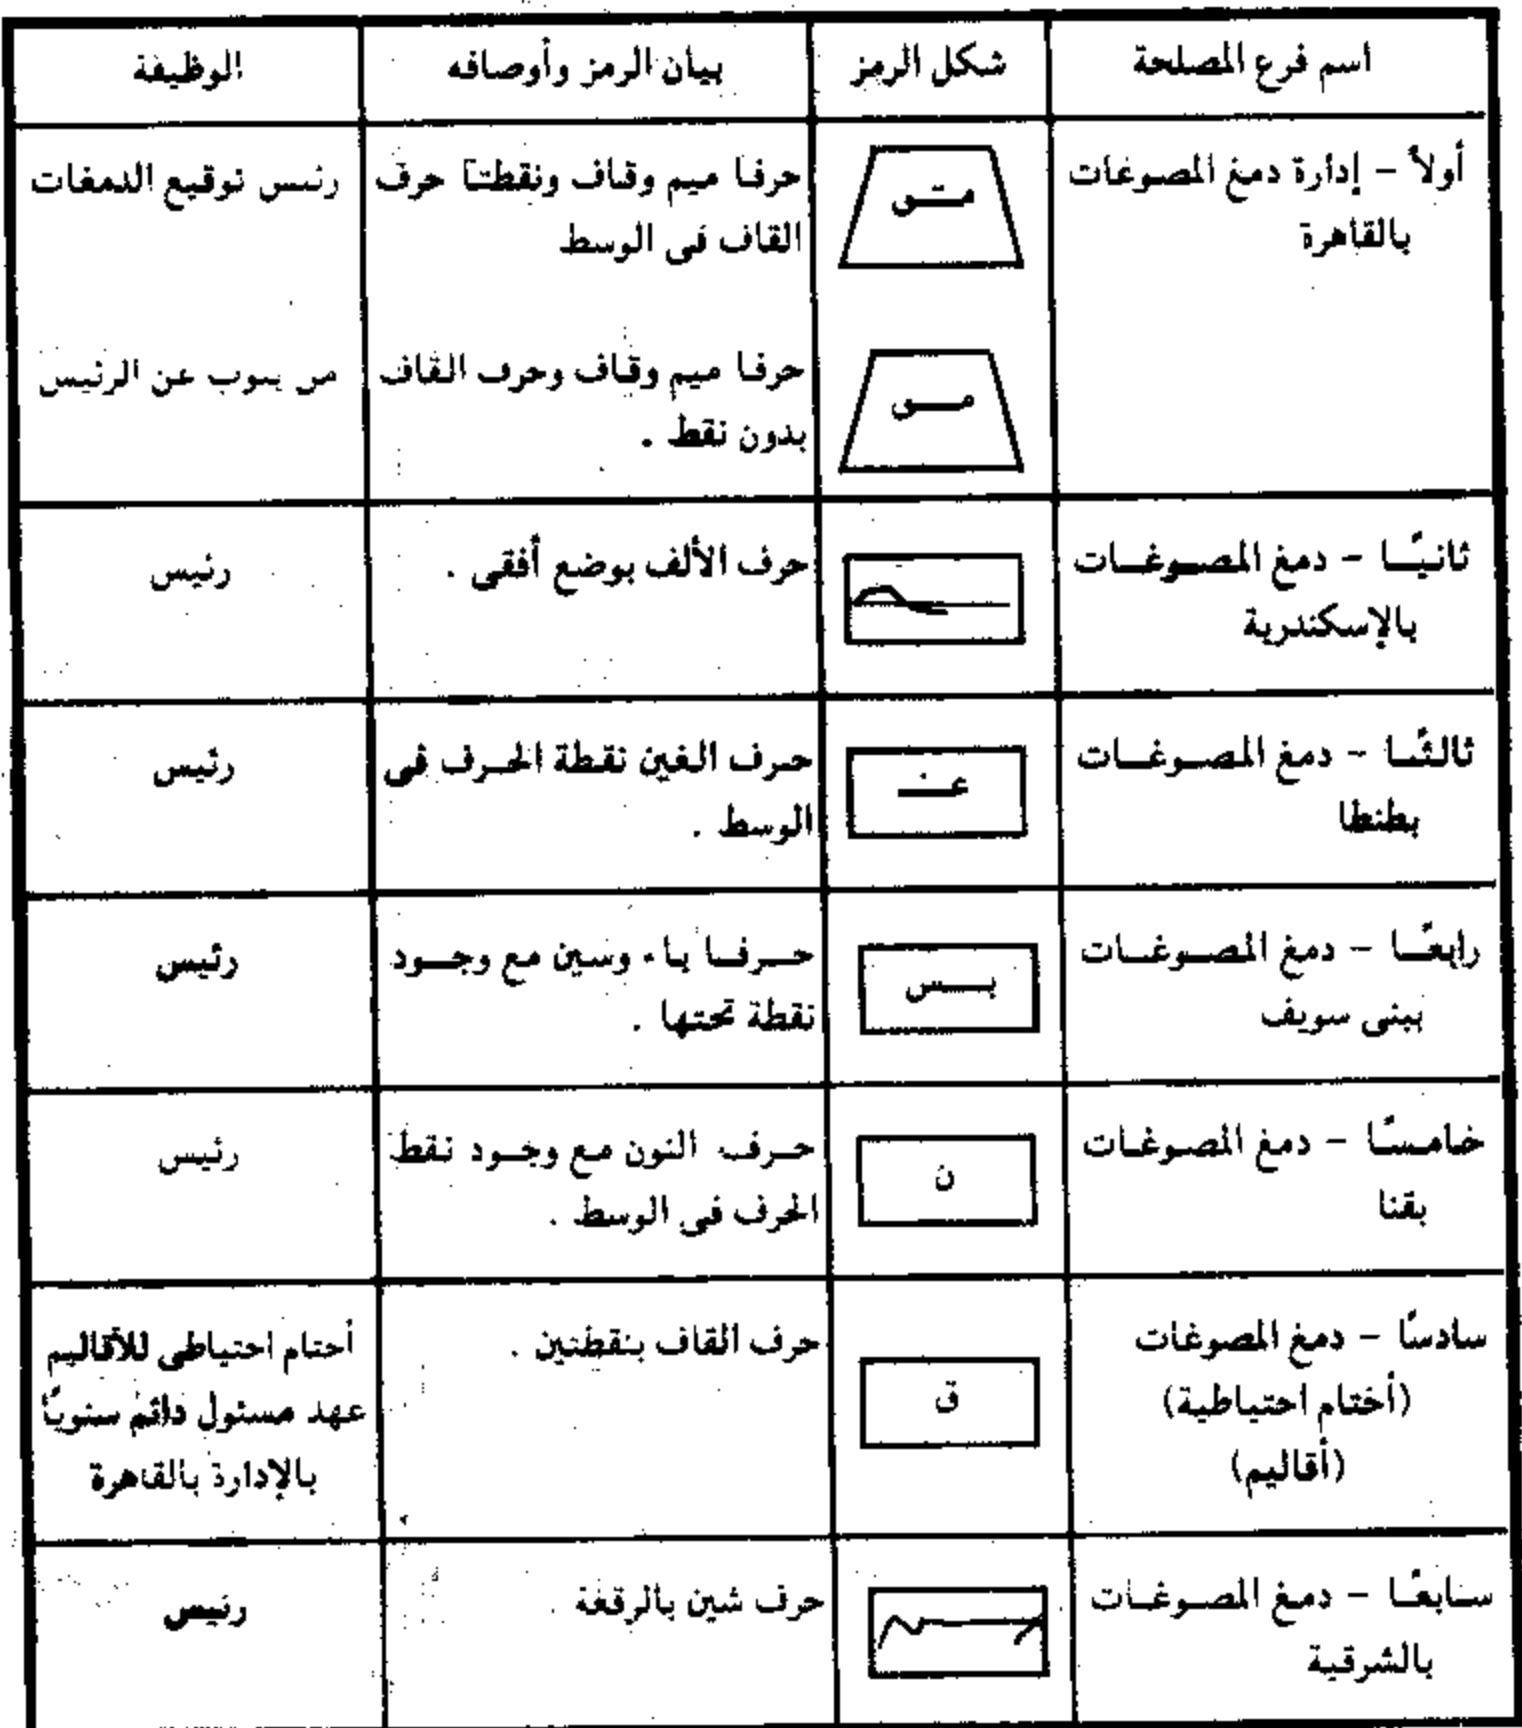 اسم فرع المصلحة	شكل الرمز	بيان الرمز وأوصافه	الوظيفة
أولاً - إدارة دمغ المصوغات
بالقاهرة
متـق
حرفا ميم وقاف ونقطتا حرف
القاف فى الوسط
رئيس توقيع الدمغات
مـى
حرفا ميم وقاف وحرف القاف
بدون نقط .
من ينوب عن الرئيس
ثانيًا - دمغ المصوغات
بالإسكندرية
حرف الألف بوضع أفقى .
رئيس
ثالثًا - دمغ المصوغات
بطنطا
غـ
حرف الغين نقطة الحرف فى
الوسط .
رئيس
رابعًا - دمغ المصوغات
ببنى سويف
بـس
حرفا باء وسين مع وجود
نقطة تحتها .
رئيس
خامسًا - دمغ المصوغات
بقنا
ن
حرف النون مع وجود نقط
الحرف فى الوسط .
رئيس
سادسًا - دمغ المصوغات
(أختام احتياطية)
(أقاليم)
ق
حرف القاف بنقطتين .
أختام احتياطى للأقاليم
عهد مسئول دائم سنويًا
بالإدارة بالقاهرة
سابعًا - دمغ المصوغات
بالشرقية
حرف شين بالرقعة
رئيس